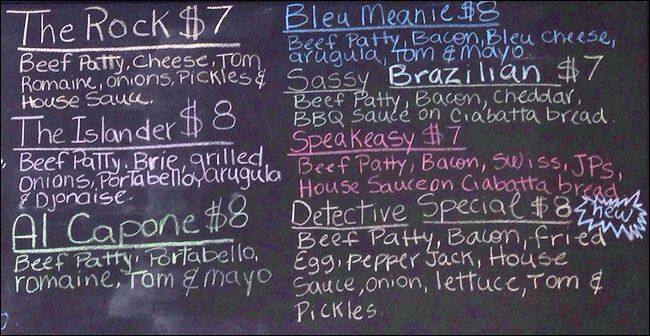 The Rock $7
Beef Patty, Cheese, Tom,
Romaine, onions, Pickles &
House Sauce.
The Islander $8
Beef Patty. Brie, grilled
onions, Portabello, arugula
& Djonaise.
Al Capone $8
Beef Patty, Portabello,
romaine, Tom & mayo
Bleu Meanie $8
Beef Patty, Bacon, Bleu Cheese,
arugula, Tom & mayo
Sassy Brazilian $7
Beef Patty, Bacon, Cheddar,
BBQ Sauce on Ciabatta bread.
Speakeasy $7
Beef Patty, Bacon, Swiss, JPs,
House Sauce on Ciabatta bread
Detective Special $8 new
Beef Patty, Bacon, fried
Egg, Pepper Jack, House
Sauce, onion, lettuce, Tom &
Pickles.